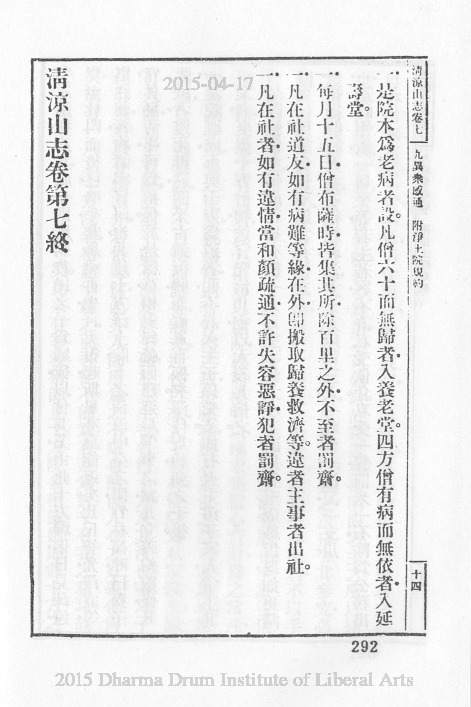 清涼山志卷七 九異衆感通 附淨土院規約 十四
一是院本爲老病者設。凡僧六十而無歸者。入養老堂。四方僧有病而無依者。入延
壽堂。
一每月十五日僧布薩時。皆集其所。除百里之外。不至者罰齋。
一凡在社道友。如有病難等緣。在外。卽搬取歸養救濟等。違者主事者出社。
一凡在社者。如有違情。當和顏疏通。不許失容惡諍。犯者罰齋。
清涼山志卷第七終
292
2015-04-17
2015 Dharma Drum Institute of Liberal Arts